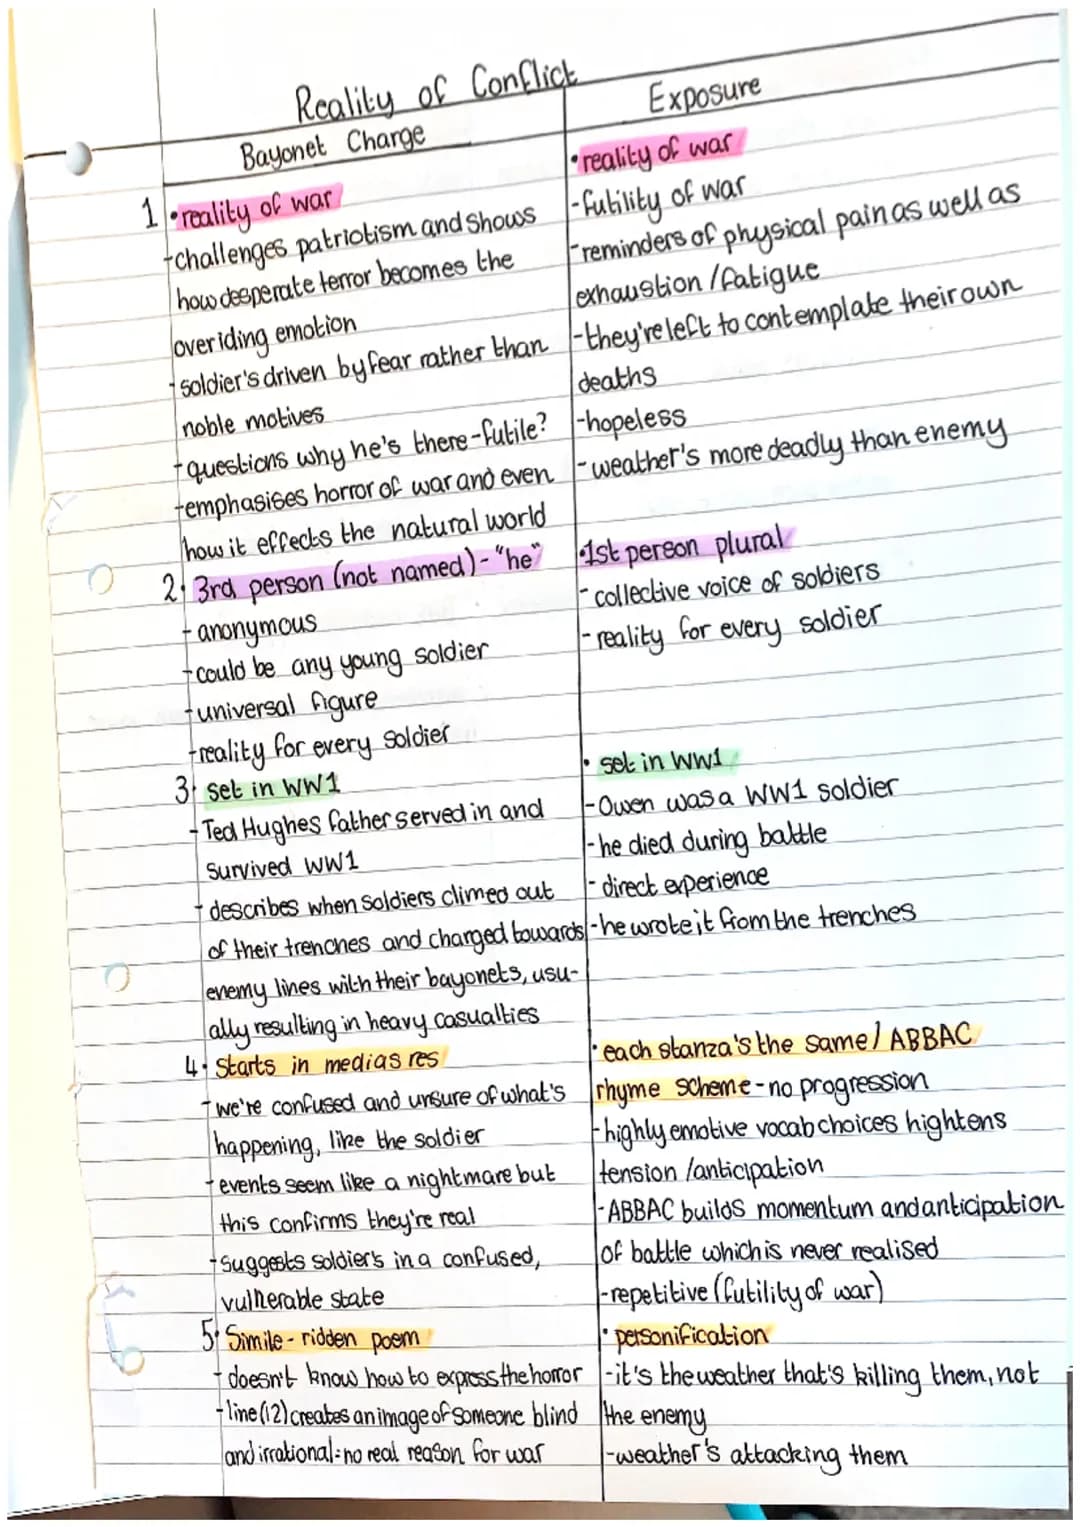 Reality of Conflict
Bayonet Charge
1 • reality of war
- challenges patriotism and shows
how desperate terror becomes the
overiding emotion
- soldier's driven by fear rather than
noble motives
- questions why he's there - futile?
- emphasises horror of war and even
how it effects the natural world
2 • 3rd person (not named) - "he"
- anonymous
- could be any young soldier
- universal figure
- reality for every soldier
3 • set in WW1
- Ted Hughes father served in and
survived WW1
- describes when soldiers climed out
of their trenches and charged towards
enemy lines with their bayonets, usu-
ally resulting in heavy casualties
4 • Starts in medias res
- we're confused and unsure of what's
happening, like the soldier
- events seem like a nightmare but
this confirms they're real
- suggests soldier's in a confused,
vulnerable state
5 • Simile - ridden poem
- doesn't know how to express the horror
- line (12) creates an image of someone blind
and irrational = no real reason for war
Exposure
• reality of war
- futility of war
- reminders of physical pain as well as
exhaustion / fatigue
- they're left to contemplate their own
deaths
- hopeless
- weather's more deadly than enemy
• 1st person plural
- collective voice of soldiers
- reality for every soldier
• set in WW1
- Owen was a WW1 soldier
- he died during battle
- direct experience
- he wrote it from the trenches
• each stanza's the same / ABBAC
rhyme scheme - no progression
- highly emotive vocab choices hightens
tension / anticipation
- ABBAC builds momentum and anticipation
of battle which is never realised
- repetitive (futility of war)
• personification
- it's the weather that's killing them, not
the enemy
- weather's attacking them